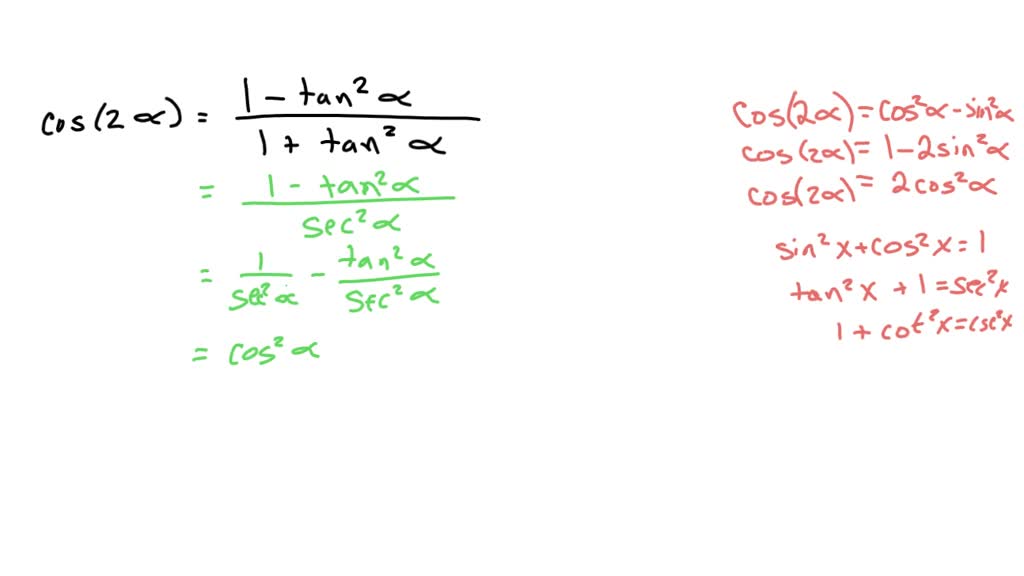 cos(2α) = (1 - tan²α)/(1 + tan²α)
= (1 - tan²α)/(sec²α)
= 1/(sec²α) - (tan²α)/(sec²α)
= cos²α
cos(2α) = cos²α - sin²α
cos(2α) = 1 - 2sin²α
cos(2α) = 2cos²α
sin²x + cos²x = 1
tan²x + 1 = sec²x
1 + cot²x = csc²x